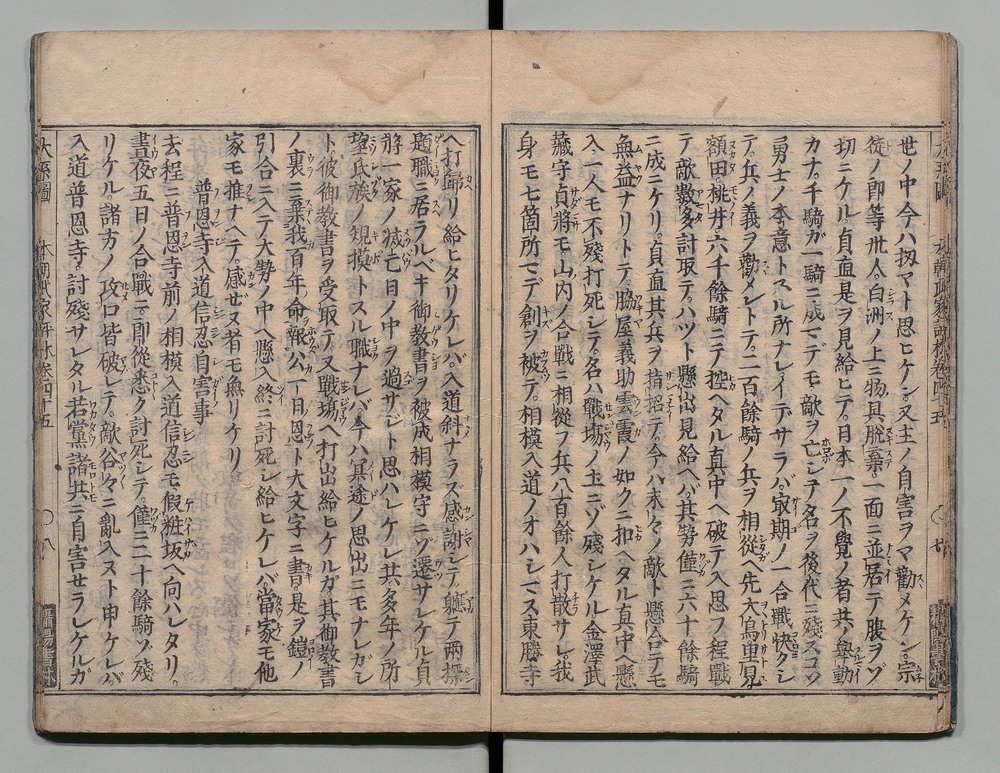 世ノ中今ハ扨マト思ヒケン。又主ノ自害ヲマ勸メケン。宗
徒ノ郎等卅人。白洲ノ上ニ物具脱棄。一面ニ並居テ腹ヲゾ
切ニケル。貞直是ヲ見給ヒテ。日本一ノ不覺ノ者共ノ舉動
カナ。千騎ガ一騎ニ成マデモ敵ヲ亡シテ名ヲ後代ニ殘スコソ
勇士ノ本意トスル所ナレイデサラバ最期ノ一合戰快クシ
テ。兵ノ義ヲ勸メントテ。二百餘騎ノ兵ヲ相從ヘ先大島里見
額田桃井。六千餘騎ニテ控ヘタル真中ヘ破テ入思フ程戰
テ敵數多討取テ。ハツト懸出見給ヘバ。其勢僅ニ六十餘騎
ニ成ニケリ。貞直其兵ヲ指招テ。今ハ末々ノ敵ト懸合テモ
無益ナリトテ。脇屋義助雲霞ノ如クニ扣ヘタル真中ヘ懸
入。一人モ不殘打死シテ。名ハ戰塲ノ土ニゾ殘シケル金澤武
藏守貞將モ山内ノ合戰ニ相從フ兵八百餘人打散サレ。我
身モ七箇所マデ創ヲ被テ。相模入道ノオハシマス東勝寺
ヘ打歸リ給ヒタリケレバ。入道斜ナラズ感謝シテ軈テ兩探
題職ニ居ラルベキ御教書ヲ被成相模守ニゾ遷サレケル貞
將一家ノ滅亡日ノ中ヲ過サジト思ハレケレ共多年ノ所
望氏族ノ規摸トスル職ナレバ。今ハ冥途ノ思出ニモナレガシ
ト。彼御教書ヲ受取テ又戰塲ヘ打出給ヒケルガ其御教書
ノ裏ニ棄我百年命報公一日恩ト大文字ニ書是ヲ鎧ノ
引合ニ入テ大勢ノ中ヘ懸入終ニ討死シ給ヒケレバ當家モ他
家モ推ナヘテ。感ゼヌ者モ無リケリ
普恩寺入道信忍自害事
去程ニ普恩寺前ノ相模入道信忍モ假粧坂ヘ向ハレタリ。
晝夜五日ノ合戰ニ。郎從悉ク討死シテ。僅ニ二十餘騎ゾ殘
リケル。諸方ノ攻口皆破レテ。敵谷々ニ亂入スト申ケレバ
入道普恩寺。討殘サレタル若黨諸共ニ自害セラレケルガ
大系圖
本朝武家評林卷四十五
八